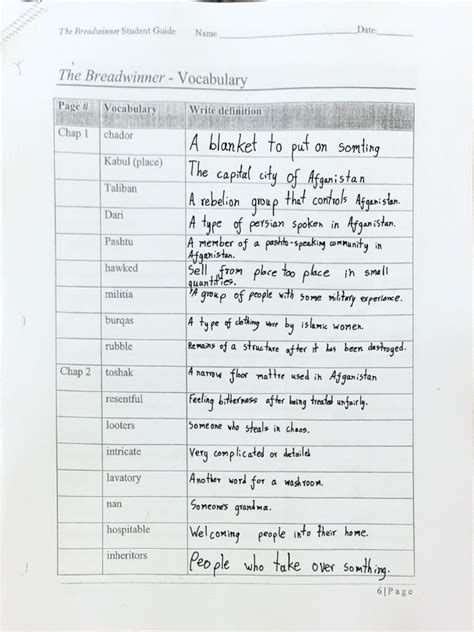 The Breadwinner Student Guide Name Date
The Breadwinner - Vocabulary
Page # Vocabulary Write definition
Chap 1 chador A blanket to put on somting
Kabul (place) The capital city of Afganistan
Taliban A rebelion group that controls Afganistan.
Dari A type of persian spoken in Afganistan.
Pashtu A member of a pashto-speaking community in
Afganistan.
hawked Sell from place too place in small
quantities.
militia A group of people with some military experiance.
burqas A type of clothing wore by islamic women.
rubble Remains of a structure after it has been destroyed.
Chap 2 toshak A narrow floor mattre used in Afganistan
resentful Feeling bitterness after being treated unfairly.
looters Someone who steals in chaos.
intricate Very complicated or detailed
lavatory Another word for a washroom.
nan Someone's grandma.
hospitable Welcoming people into their home.
inheritors People who take over somthing.
6|Page